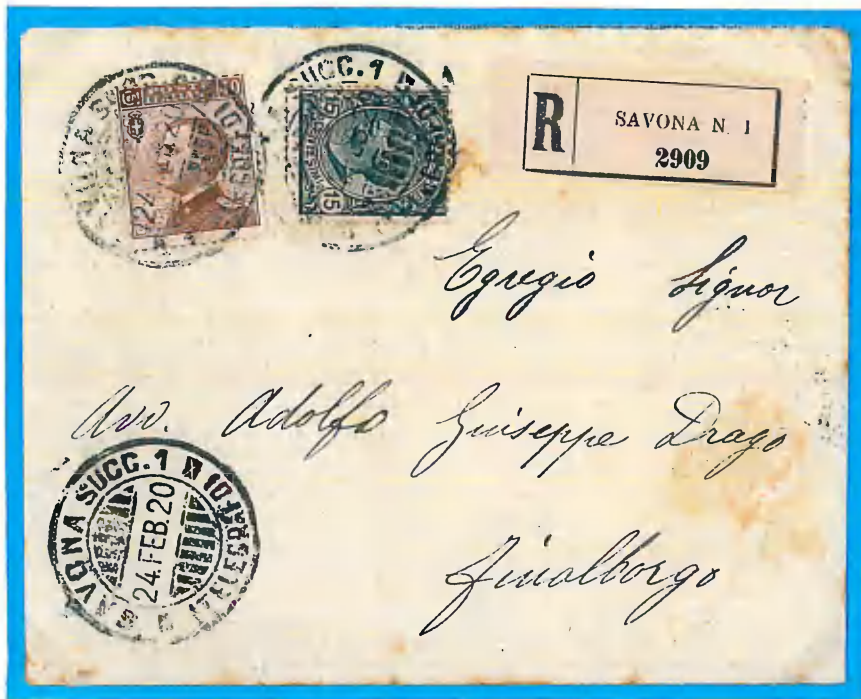 SUCC. 1
15 15
R SAVONA N. 1
2909
Egregio Signor
Avv. Adolfo Giuseppe Drago
Finalborgo
SAVONA SUCC. 1
24.FEB.20